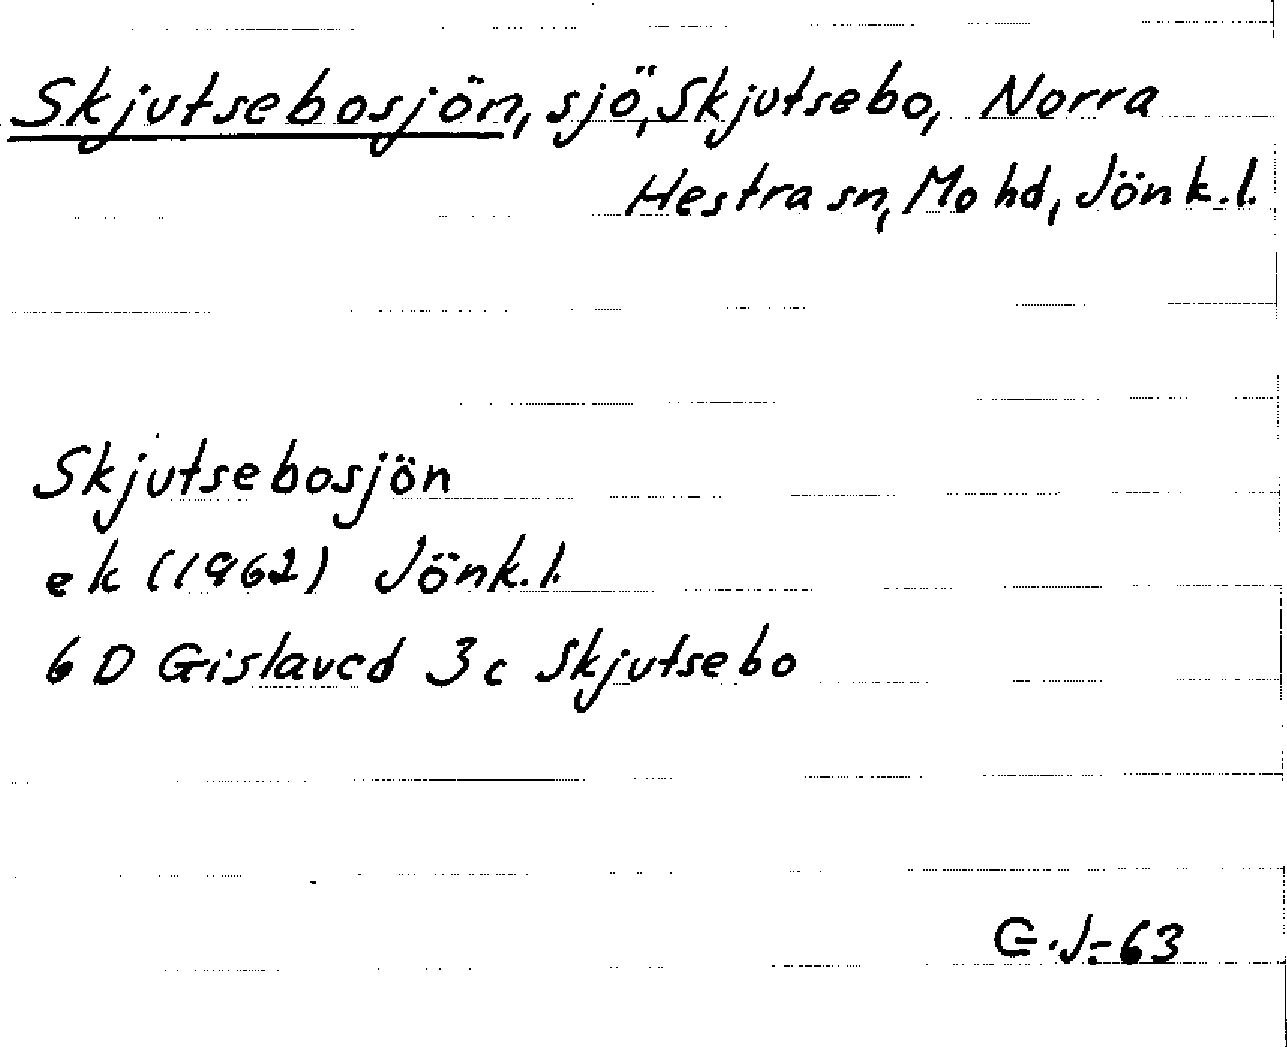 Skjutsebosjön, sjö, Skjutsebo, Norra
Hestra sn, Mo hd, Jönk.l.
Skjutsebosjön
ek (1962) Jönk.l.
6 D Gislaved 3c Skjutsebo
G.J.-63